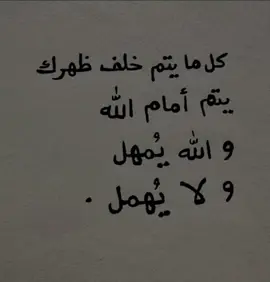 كل ما يتم خلف ظهرك
يتم أمام الله
و الله يُمهل
و لا يُهمل .